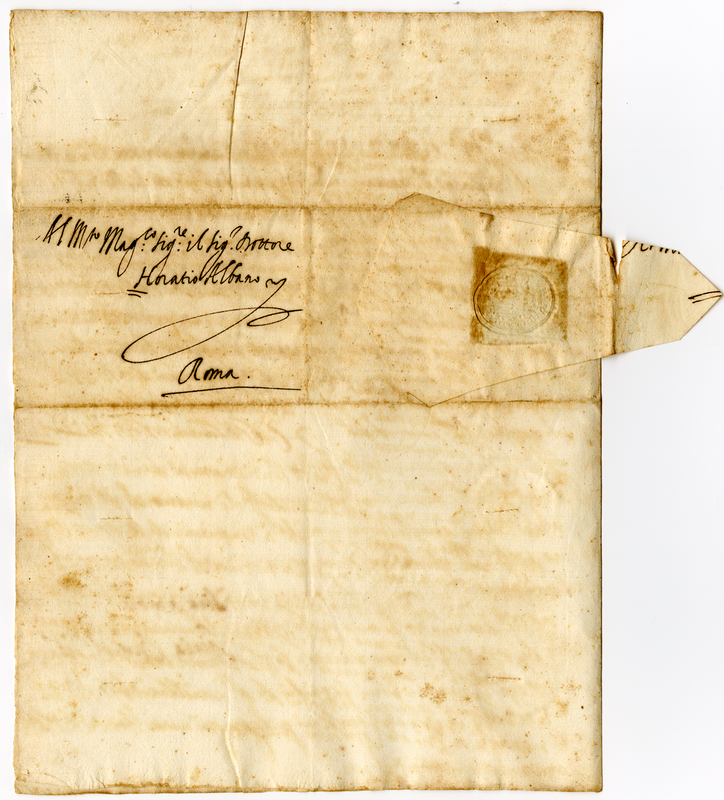 Al M.to Mag.co Sig.re il Sig.r Dottore
Horatio Albano
Roma.
Roma